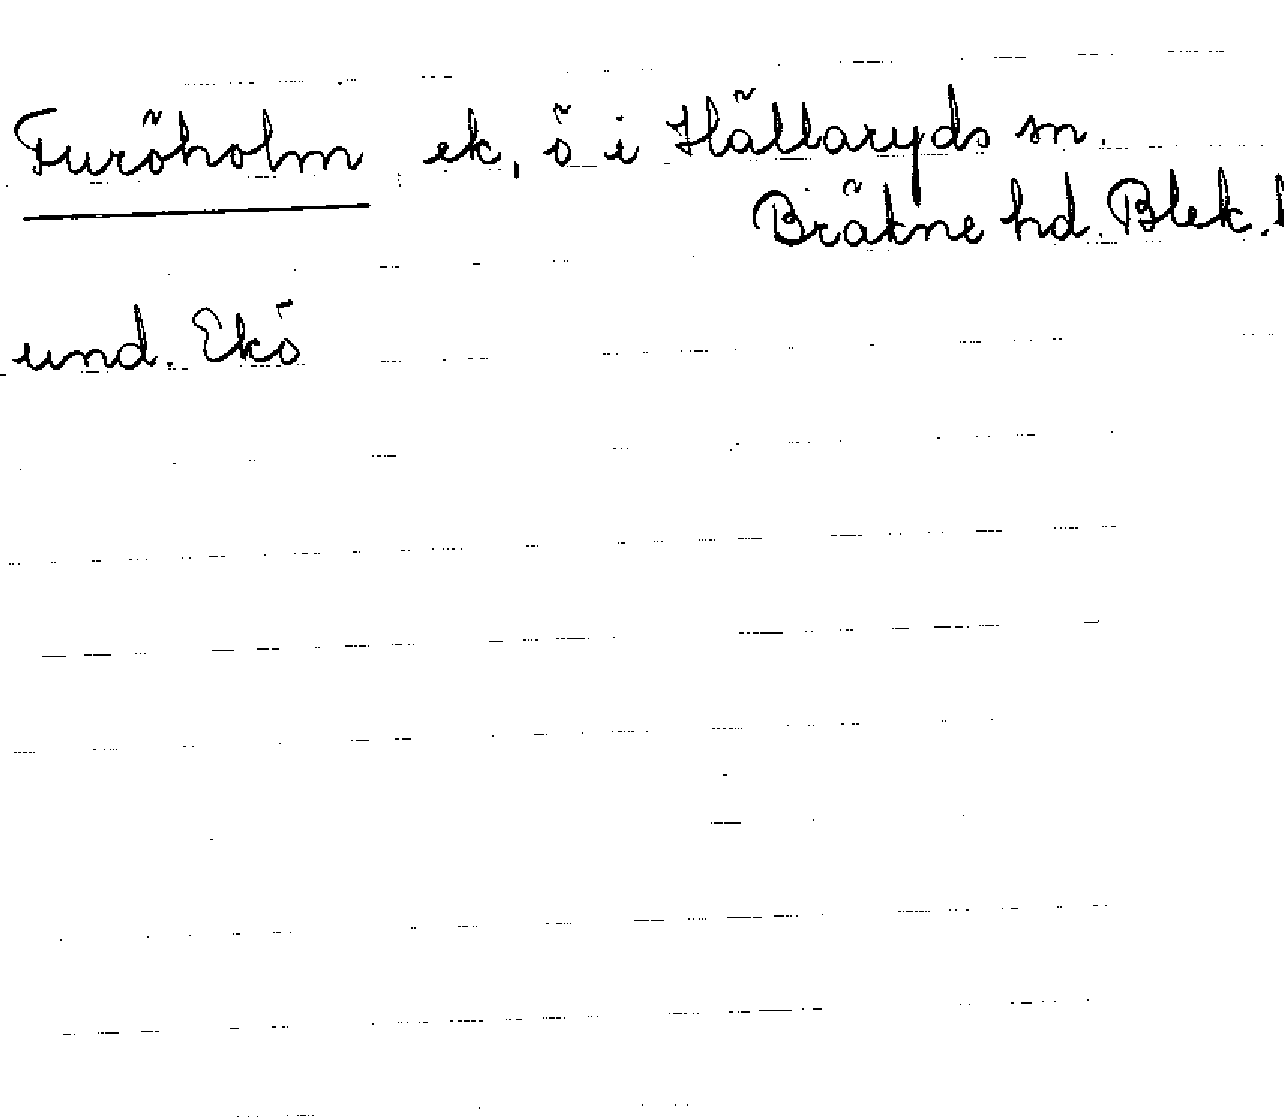 Furöholm ek, ö i Hällaryds sn.
Bräkne hd. Blek.
und. Ekö